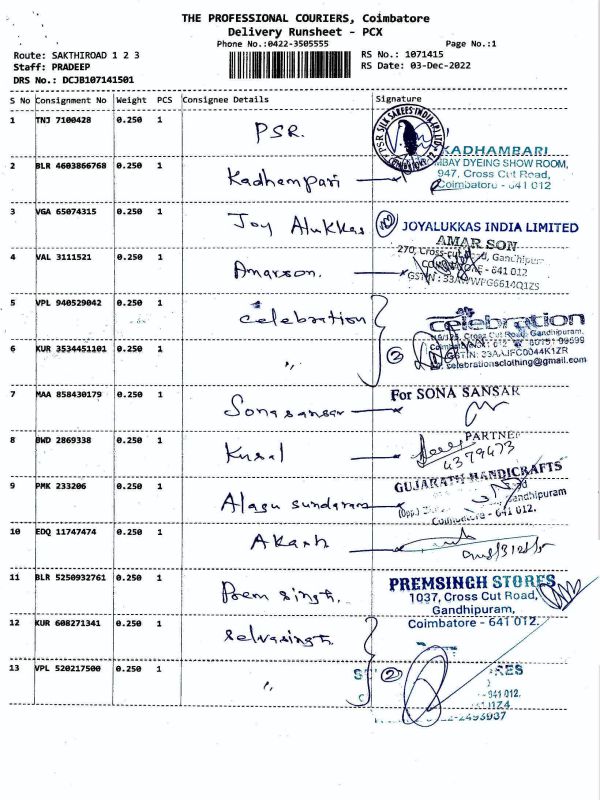 THE PROFESSIONAL COURIERS, Coimbatore
Delivery Runsheet - PCX
Phone No.:0422-3505555 Page No.:1
Route: SAKTHIROAD 1 2 3 RS No.: 1071415
Staff: PRADEEP RS Date: 03-Dec-2022
DRS No.: DCJB107141501
S No Consignment No Weight PCS Consignee Details Signature
1 TNJ 7100428 0.250 1 PSR.
PSR SILK SAREES INDIA (P) LTD
COIMBATORE-12
KADHAMBARI
2 BLR 4603866768 0.250 1 Kadhempari
BOMBAY DYEING SHOW ROOM,
947, Cross Cut Road,
Coimbatore - 641 012
3 VGA 65074315 0.250 1 Joy Alukkas JOYALUKKAS INDIA LIMITED
AMAR SON
4 VAL 3111521 0.250 1 Amarson.
270, Cross-cut Road, Gandhipur
COIMBATORE - 641 012
5 VPL 940529042 0.250 1 celebartion
celebration
Cross Cut Road, Gandhipuram,
6 KUR 3534451101 0.250 1 2
GSTIN: 33AAJFC0044K1ZR
celebrationsclothing@gmail.com
7 MAA 858430179 0.250 1 Sonasansar For SONA SANSAR
PARTNER
8 BWD 2869338 0.250 1 Kural
4379473
9 PMK 233206 0.250 1 Alagu sundaram GUJARATH HANDICRAFTS
Gandhipuram
Coimbatore - 641 012.
10 EDQ 11747474 0.250 1 Akash
11 BLR 5250932761 0.250 1 Prem singh. PREMSINGH STORES
1037, Cross Cut Road,
Gandhipuram,
12 KUR 608271341 0.250 1 selvasingh Coimbatore - 641 012.
13 VPL 520217500 0.250 1 " 2
-2493937